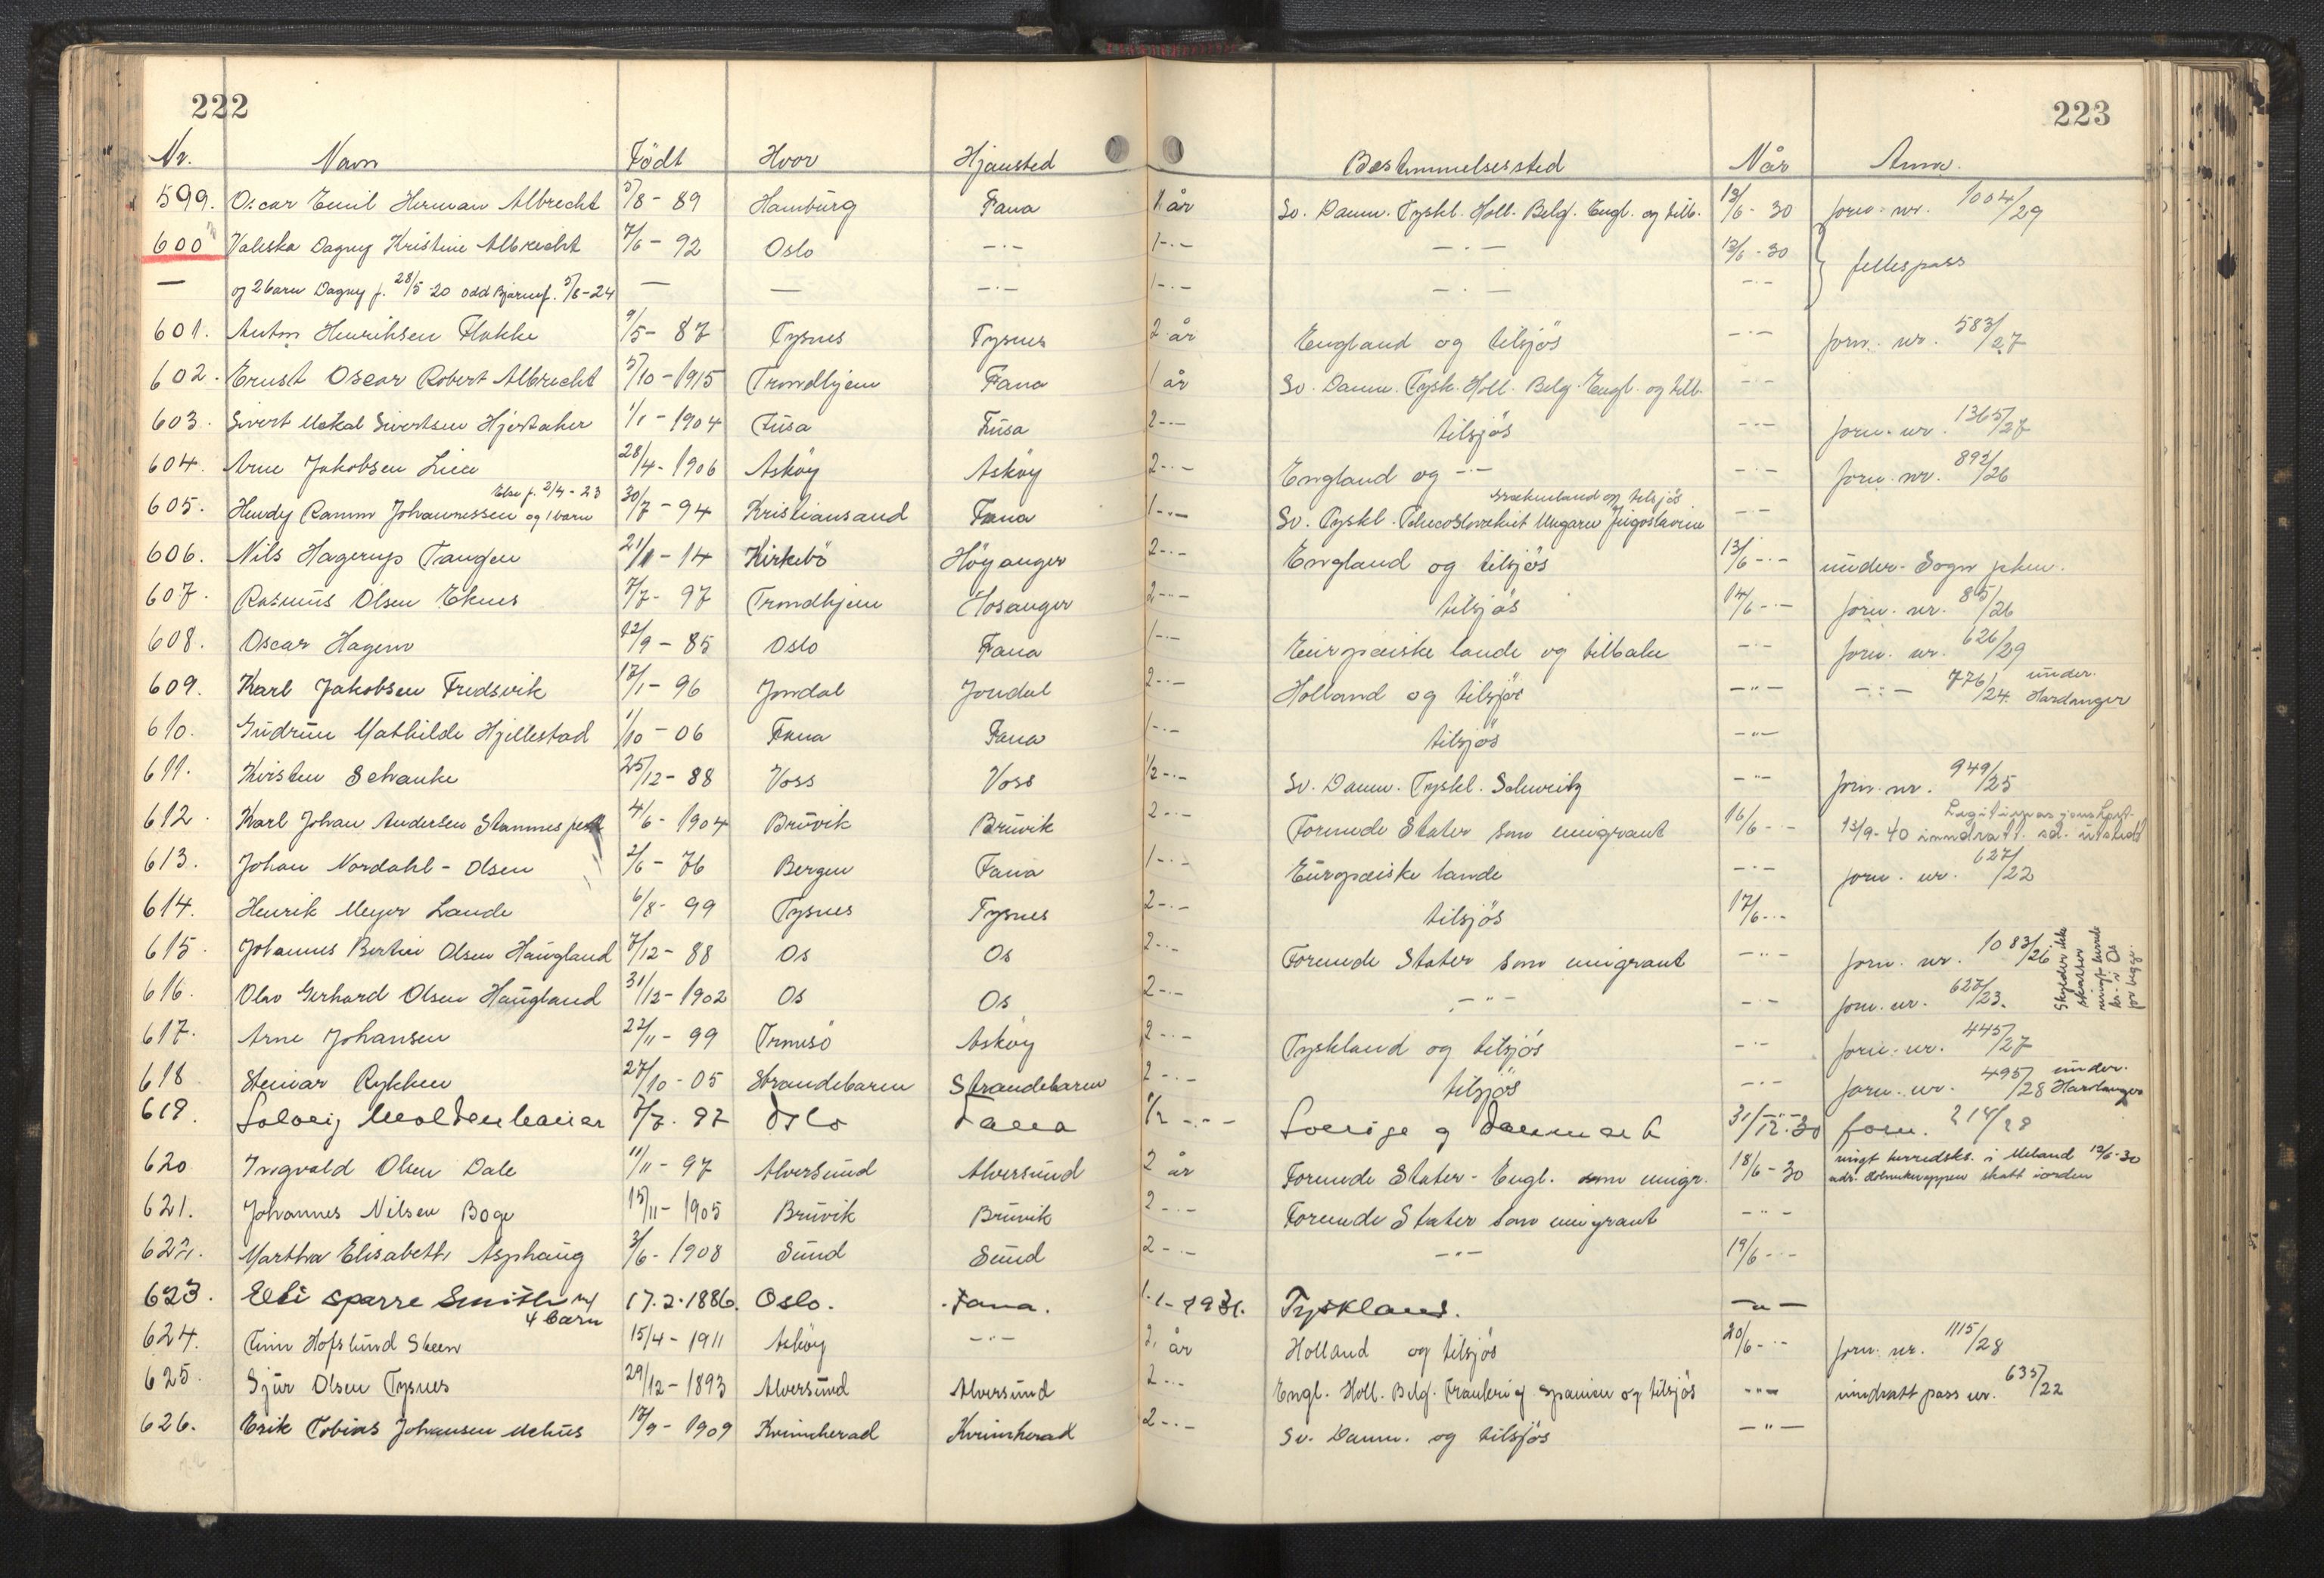 222
223
Nr. Navn Födt Hvor Hjemsted Bestemmelsessted Når Anm.
599. Oscar Emil Herman Albrecht 5/8 - 89 Hamburg Fana 1 år Sv. Danm. Tyskl. Holl. Belg. Engl. og tilb. 13/6 - 30 forn. nr. 1004/29
600 Valeska Dagny Kristine Albrecht 7/6 - 92 Oslo -·- 1-·- -·- 13/6 - 30 fellespass
— og 2 barn Dagny f. 28/5 -20 Odd Bjarne f. 5/8 -24 — — -·- 1-·- -·- -·-
601. Anton Henriksen Flakke 9/5 - 87 Tysnes Tysnes 2 år England og tilsjös -·- forn. nr. 583/27
602. Ernst Oscar Robert Albrecht 5/10 - 1915 Trondhjem Fana 1 år Sv. Danm. Tysk. Holl. Belg. Engl. og tilb. -·-
603. Sivert Mikal Sivertsen Hjertaker 1/1 - 1904 Fusa Fusa 2-·- tilsjös -·- forn. nr. 1365/27
604. Arne Jakobsen Lien 28/4 - 1906 Asköy Asköy 2-·- England og -·- -·- forn. nr. 892/26
Else f. 2/4 - 23 Grækenland og tilsjös
605. Hendy Ramm Johannessen og 1 barn 30/7 - 94 Kristiansand Fana 1-·- Sv. Tyskl. Tchecoslovakiet Ungarn Jugoslavien -·-
606. Nils Hagerup Tangen 21/1 - 14 Kirkebö Höyanger 2-·- England og tilsjös 13/6 -·- under Sogn
607. Rasmus Olsen Eknes 7/7 - 97 Trondhjem Hosanger 2-·- tilsjös 14/6 -·- forn. nr. 85/26
608. Oscar Hagem 12/9 - 85 Oslo Fana 1-·- Europæiske lande og tilbake -·- forn. nr. 626/29
609. Karl Jakobsen Fredsvik 17/1 - 96 Jondal Jondal 2-·- Holland og tilsjös -"- -:- 776/24. under Hardanger
610. Gudrun Mathilde Hjellestad 1/10 - 06 Fana Fana 1-·- tilsjös -"-
611. Kirsten Schanke 25/12 - 88 Voss Voss 1/2-·- Sv. Danm. Tyskl. Schweitz -"- forn. nr. 949/25
612. Karl Johan Andersen Stamnes 4/6 - 1904 Bruvik Bruvik 2-·- Forenede Stater som emigrant 16/6 -·- Legitimasjonskort 13/9-40 inndratt.
613. Johan Nordahl - Olsen 2/6 - 76 Bergen Fana 1-·- Europæiske lande -·- forn. nr. 627/22
614. Henrik Meyer Lande 6/8 - 99 Tysnes Tysnes 2-·- tilsjös 17/6 -·-
615. Johannes Bertin Olsen Haugland 7/12 - 88 Os Os 2-·- Forenede Stater som emigrant -"- forn. nr. 1083/26
616. Olav Gerhard Olsen Haugland 31/12 - 1902 Os Os 2-·- -"- -·- forn. nr. 627/23.
Skylder ikke skatter i Os for begge.
617. Arne Johansen 22/11 - 99 Tromsö Asköy 2-·- Tyskland og tilsjös -·- forn. nr. 445/27
618 Steinar Rykken 27/10 - 05 Strandebarm Strandebarm 2-·- tilsjös -·- forn. nr. 495/28 under Hardanger
619. Solveig Moldenhauer 7/7 - 97 Oslo Fana 1/2 -·- Sverige og Danmark 31/12-30 forn. 214/28
620 Ingvald Olsen Dale 11/11 - 97 Alversund Alversund 2 år Forenede Stater - Engl. som emigr. 18/6 - 30 i Meland 12/6-30 skatt iorden
621. Johannes Nilsen Boge 15/11 - 1905 Bruvik Bruvik 2-·- Forenede Stater som emigrant -"-
622. Martha Elisabeth Asphaug 3/6 - 1908 Sund Sund 2-·- -"- 19/6 -·-
623. Elli Sparre Smith m/ 4 barn 17.2.1886. Oslo. Fana. 1-1-1931. Tyskland. -"-
624. Finn Hofslund Steen 15/4 - 1911 Asköy -·- 2 år Holland og tilsjös 20/6 -·- forn. nr. 1115/28
625. Sjur Olsen Tysnes 29/12 - 1893 Alversund Alversund 2-·- Engl. Holl. Belg. Frankrig Spanien og tilsjös -"- inndratt pass nr. 635/22
626. Erik Tobias Johansen Mehus 17/9 - 1909 Kvinnherad Kvinnherad 2-·- Sv. Danm. og tilsjös -"-